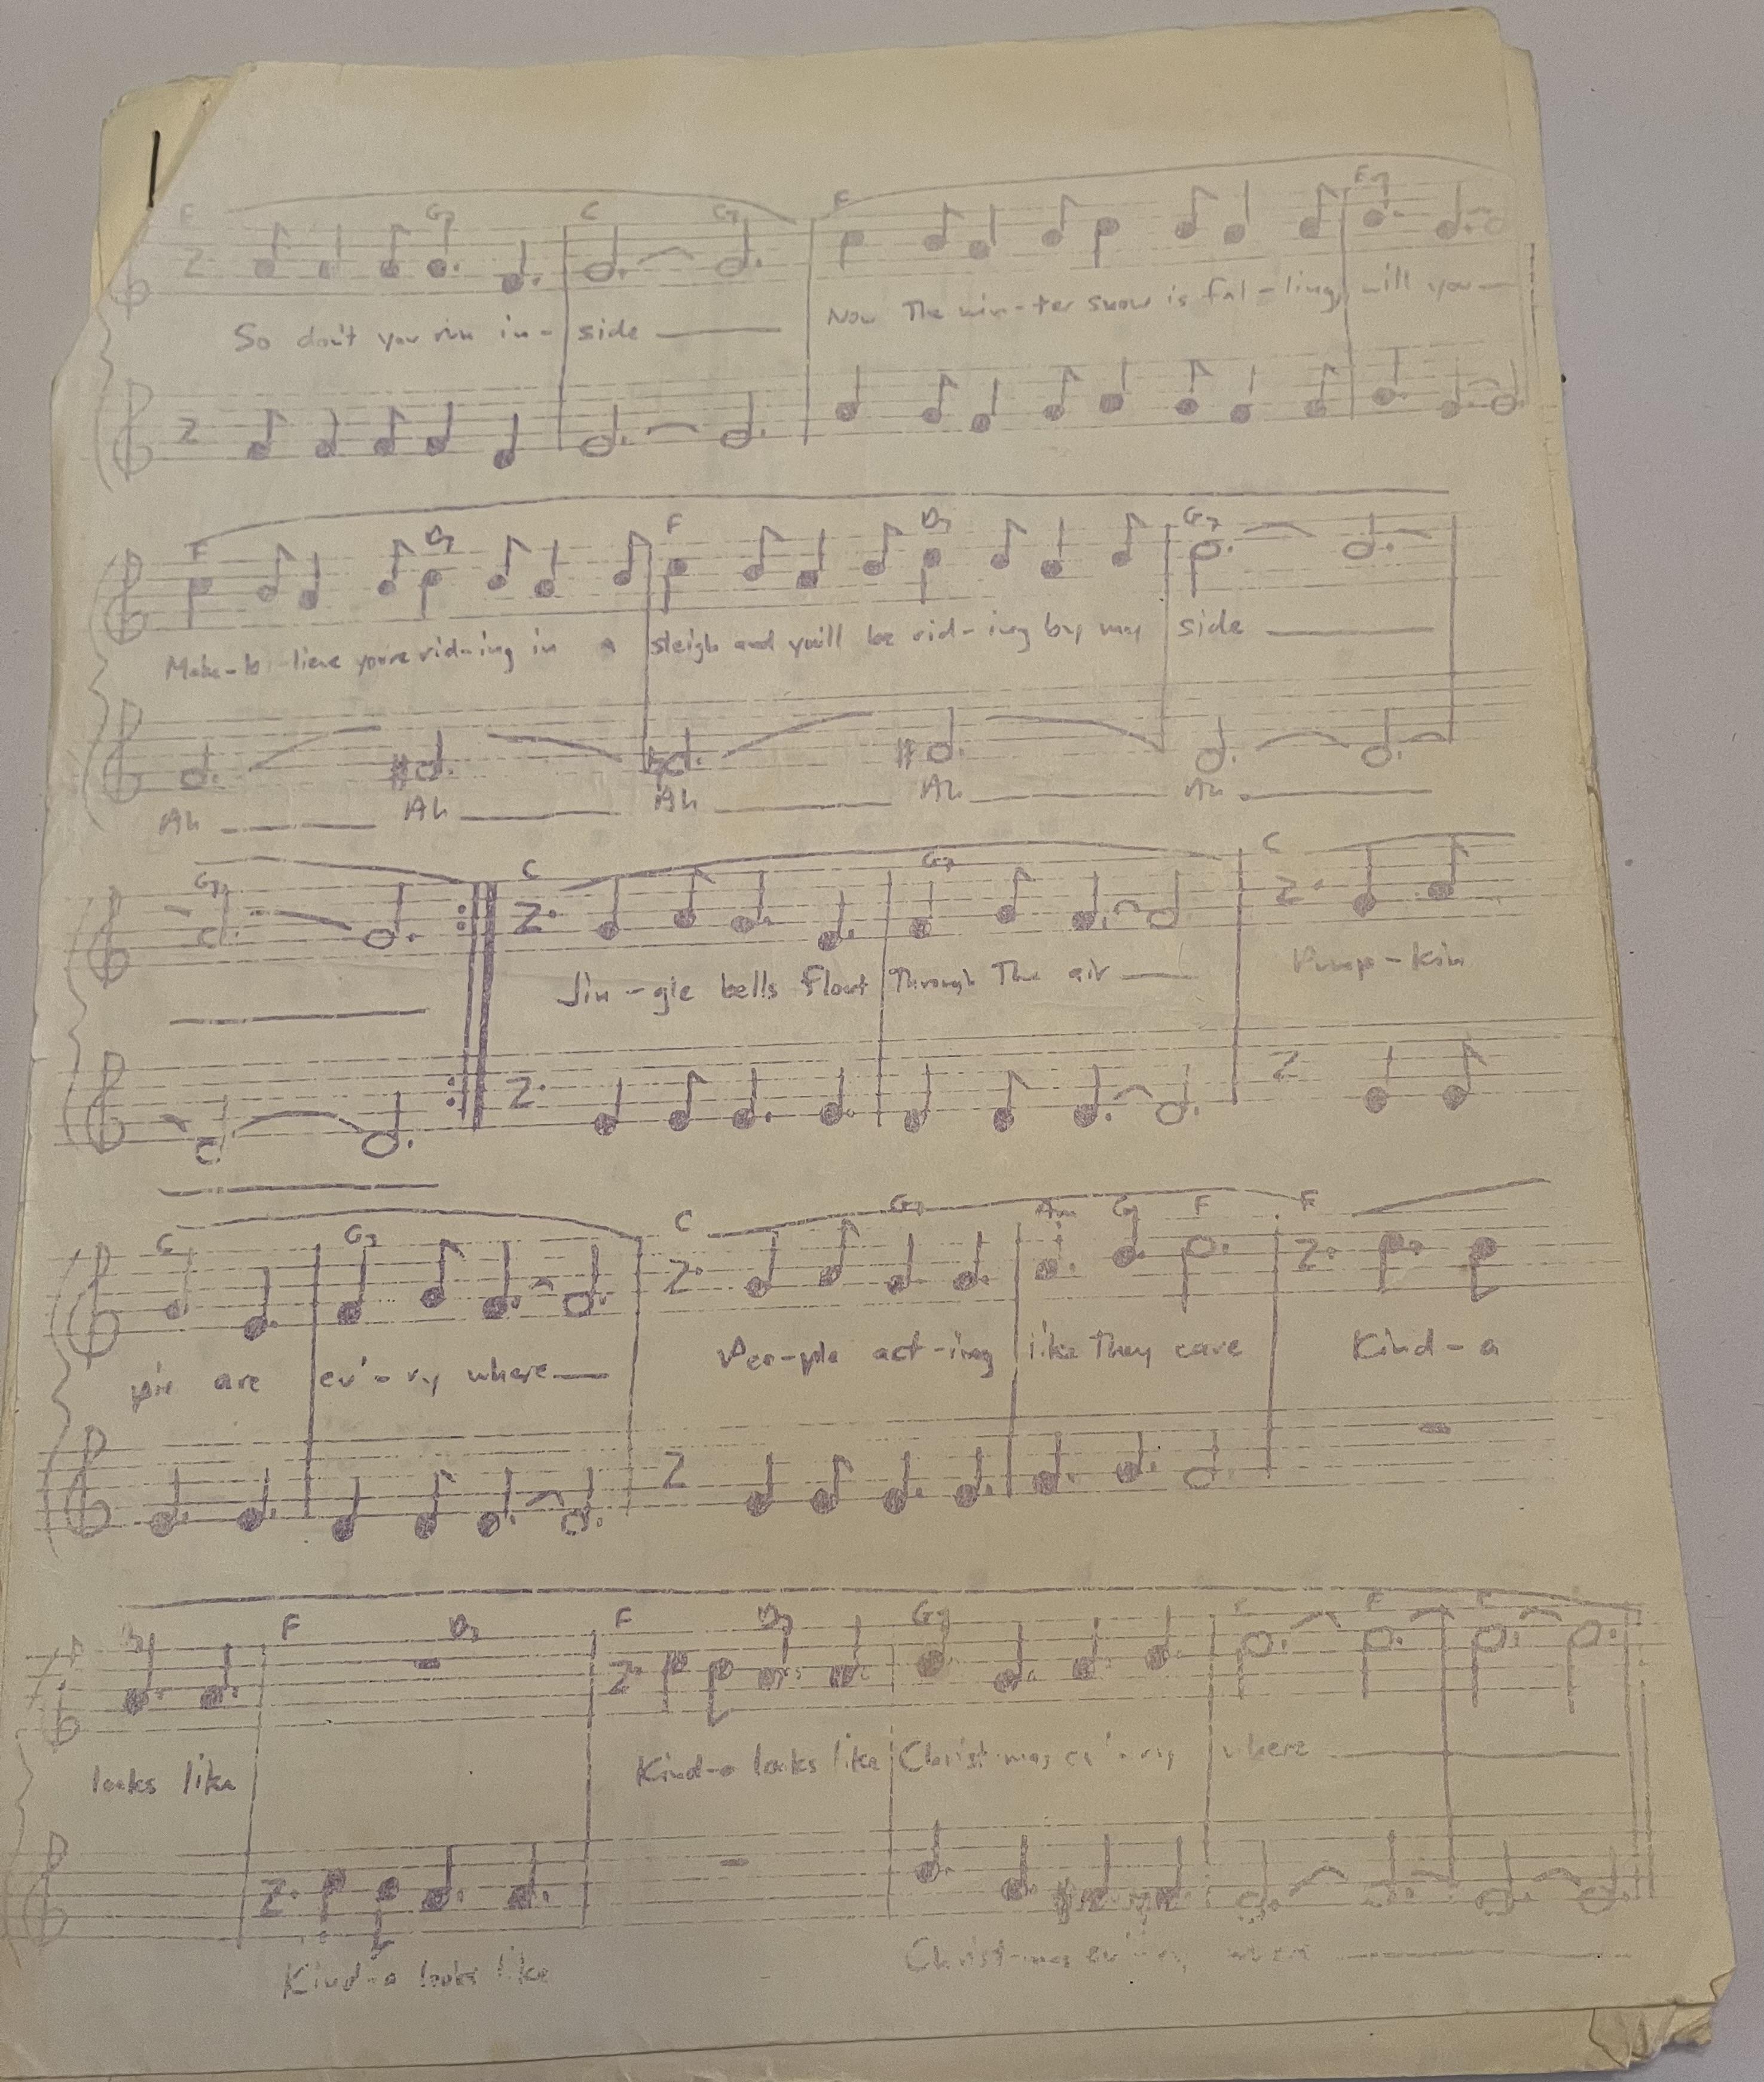 F G7 C G7 F Em
So don't you run in- side Now The win-ter snow is fal-ling, will you
F D7 F D7 G7
Make-b lieve you're rid-ing in a sleigh and you'll be rid-ing by my side
Ah Ah Ah Ah Ah
G7 C G7 C
Jin-gle bells float Through The air Pump-kin
C G7 C G7 Am G F F
pie are ev'-ry where Peo-ple act-ing like They care Kind-a
D7 F D7 F D7 G7 F C
looks like Kind-a looks like Christ-mas ev'-ry where
Kind-a looks like Christ-mas ev'-ry where